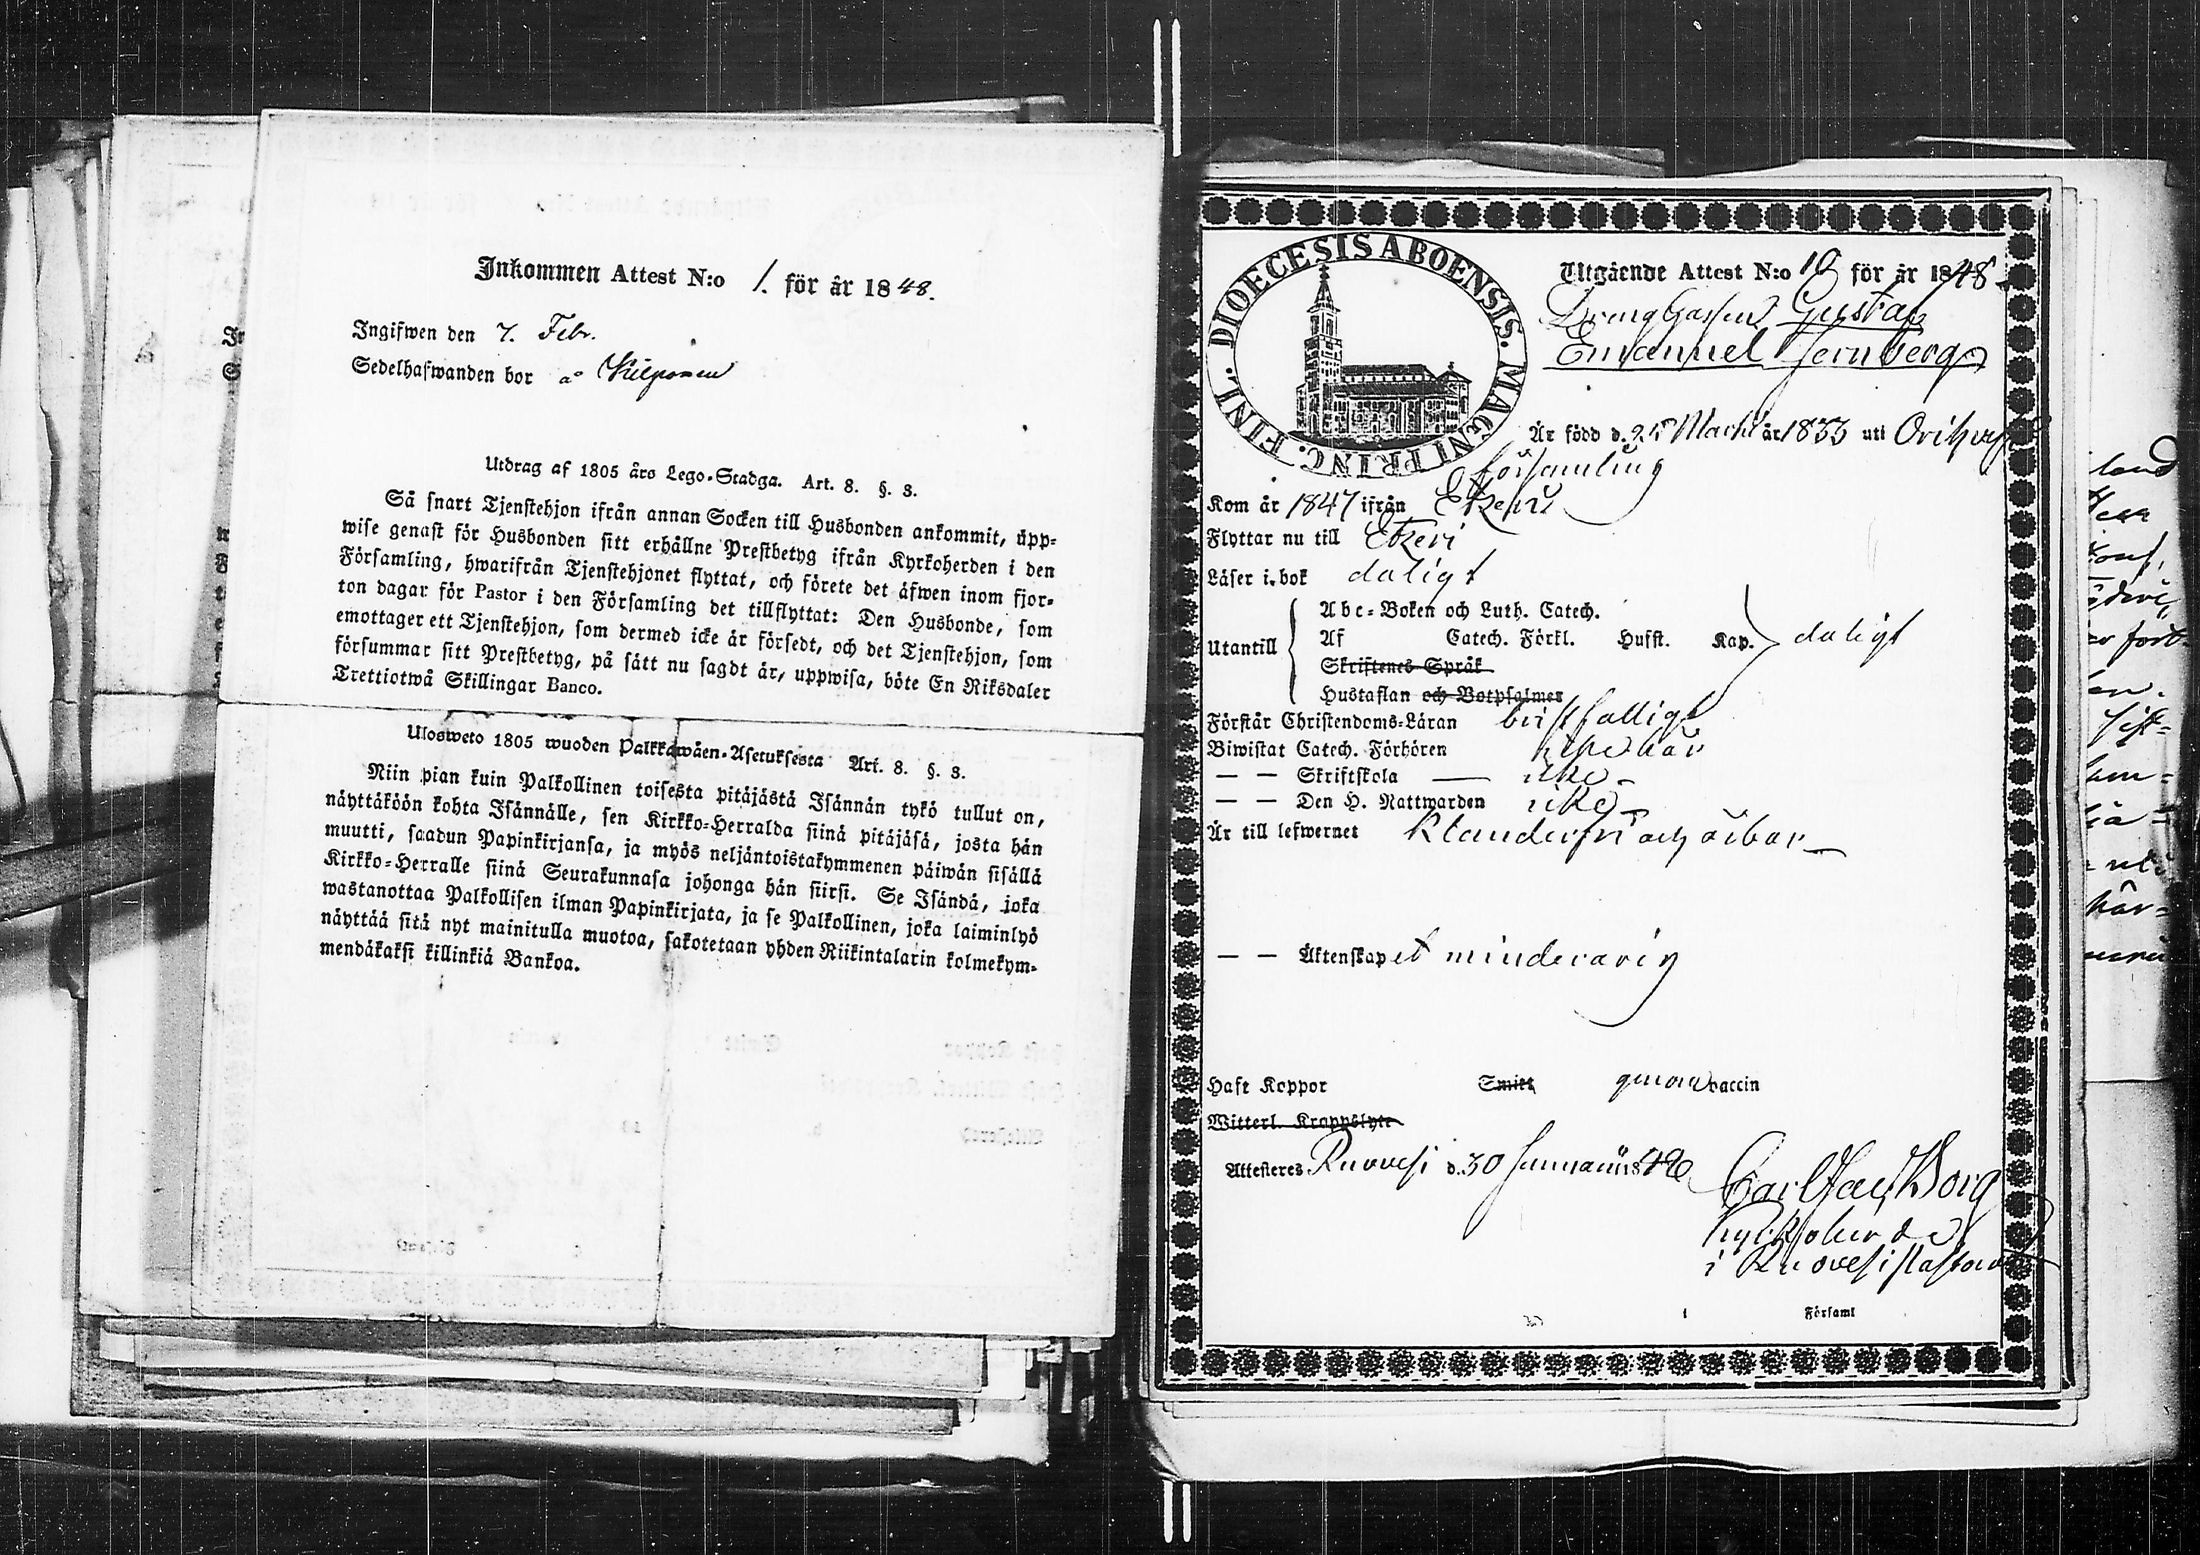 Inkommen Attest N:o 1. för år 1848.
Ingifwen den 7. Febr.
Sedelhafwanden bor å Kilponen
Utdrag af 1805 års Lego-Stadga. Art. 8. §. 3.
Så snart Tjenstehjon ifrån annan Socken till Husbonden ankommit, upp-
wise genast för Husbonden sitt erhållne Prestbetyg ifrån Kyrkoherden i den
Församling, hwarifrån Tjenstehjonet flyttat, och förete det äfwen inom fjor-
ton dagar för Pastor i den Församling det tillflyttat: Den Husbonde, som
emottager ett Tjenstehjon, som dermed icke är försedt, och det Tjenstehjon, som
försummar sitt Prestbetyg, på sätt nu sagdt är, uppwisa, böte En Riksdaler
Trettiotwå Skillingar Banco.
Ulosweto 1805 wuoden Palkkawäen-Asetuksesta Art. 8. §. 3.
Niin pian kuin Palkollinen toisesta pitäjästä Isännän tykö tullut on,
näyttäköön kohta Isännälle, sen Kirkko-Herralda siinä pitäjäsä, josta hän
muutti, saadun Papinkirjansa, ja myös neljäntoistakymmenen päiwän sisällä
Kirkko-Herralle siinä Seurakunnasa johonga hän siirsi. Se Isändä, joka
wastanottaa Palkollisen ilman Papinkirjata, ja se Palkollinen, joka laiminlyö
näyttää sitä nyt mainitulla muotoa, sakotetaan yhden Riikintalarin kolmekym-
mendäkaksi killinkiä Bankoa.
DIOECESIS ABOENSIS. MAGNI PRINC. FINL.
Utgående Attest N:o 10 för år 1848
Dreng Gossen Gustaf
Emanuel Jernberg
Är född d. 25 Martii år 1833 uti Orihvesi
församling
Kom år 1847 ifrån Etzeri
Flyttar nu till Etzeri
Läser i bok daligt
Abc-Boken och Luth. Catech.
Utantill Af Catech. Förkl. Hufst. Kap. daligt
Skriftenes Språk
Hustaflan och Botpsalmer
Förstår Christendoms-Läran bristfälligt
Biwistat Catech. Förhören
— — Skriftskola — icke
— — Den H. Nattwarden icke
Är till lefwernet klanderfri och ärbar
— — Äktenskapet minderårig
Haft Koppor Smitt genom vaccin
Witterl. Kroppslyte
Attesteres Ruovesi d. 30 Januarii 1848
Carl Jac. Borg
Kyrkoherde
i Ruovesi Pastorat
i Församl